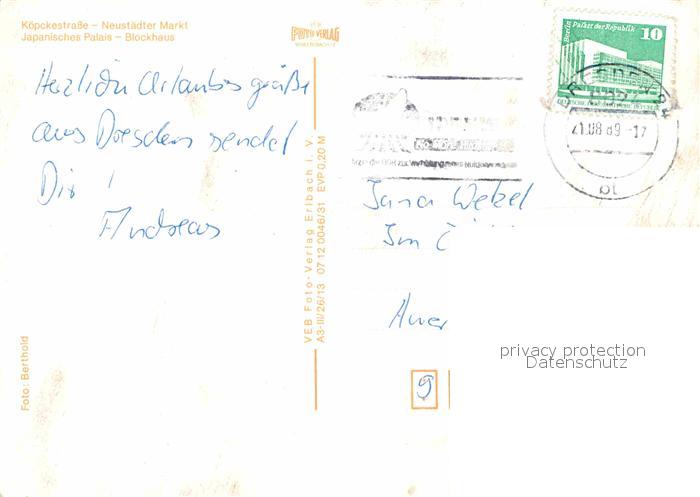 Köpckestraße – Neustädter Markt
Japanisches Palais – Blockhaus
VEB
PHOTO VERLAG
Herzliche Urlaubsgrüße
aus Dresden sendet
Dir !
Andreas
Foto: Berthold
VEB Foto-Verlag Erlbach i. V.
A3-III/26/13 07 12 0046/31 EVP 0,20 M
Berlin Palast der Republik
10
21.08 89 -17
bt
Jana Wetzel
Im
Auer
9
privacy protection
Datenschutz